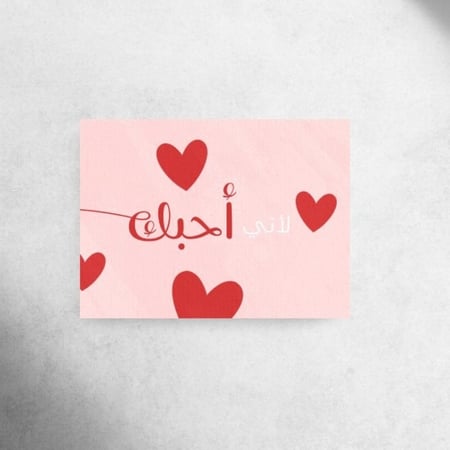 لأني أحبك